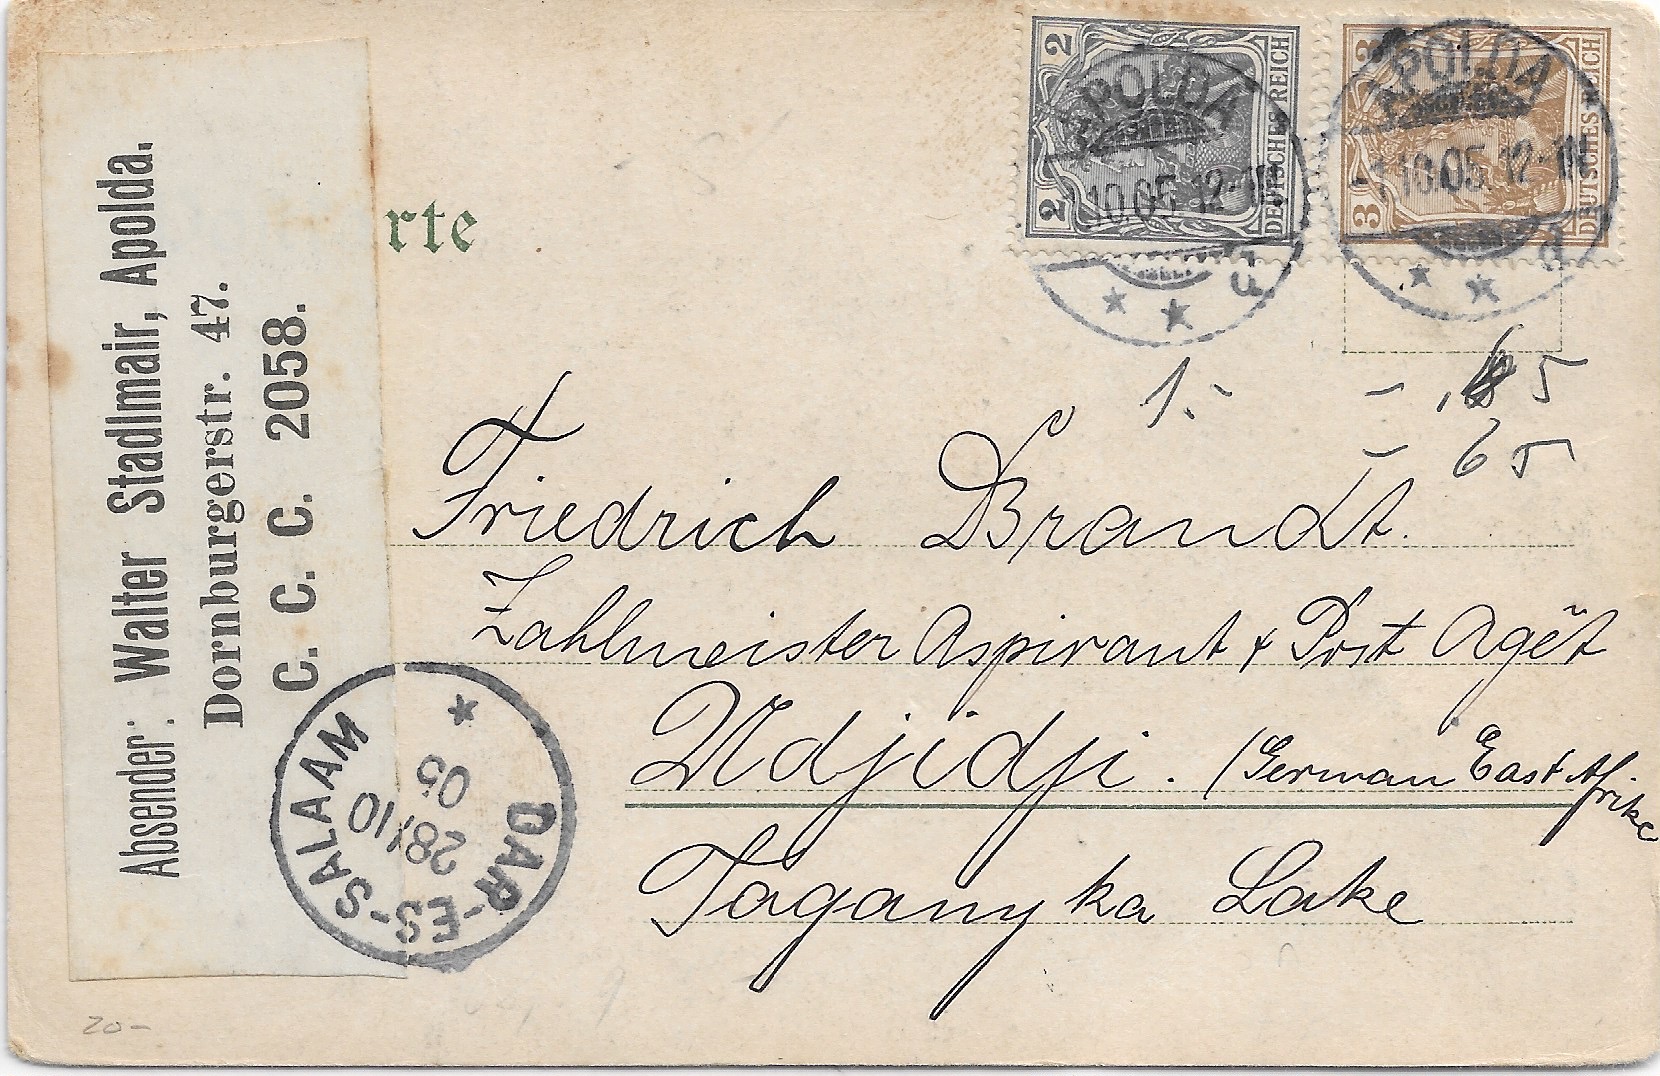 Absender: Walter Stadlmair, Apolda.
Dornburgerstr. 47.
C. C. C. 2058.
rte
2 2 DEUTSCHES REICH
3 3 DEUTSCHES REICH
APOLDA
10.05. 12-
APOLDA
-1.10.05. 12-
d
1.-
5
65
Friedrich Brandt.
Zahlmeister Aspirant & Post Agēt
Udjidji. (German East Afrike
Taganyka Lake
DAR-ES-SALAAM
28/10
05
20-